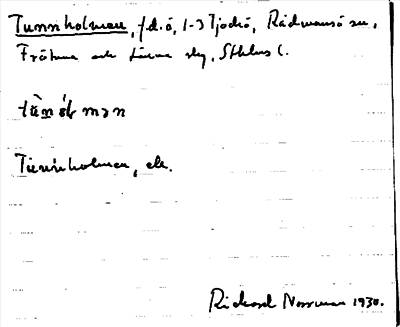 Tunnholman, f.d. ö, 1-3 Tjockö, Rådmansö sn,
Frötuna och Länna slg, Sthlms l.
Tunnholman, ek.
Rickard Norrman 1930.